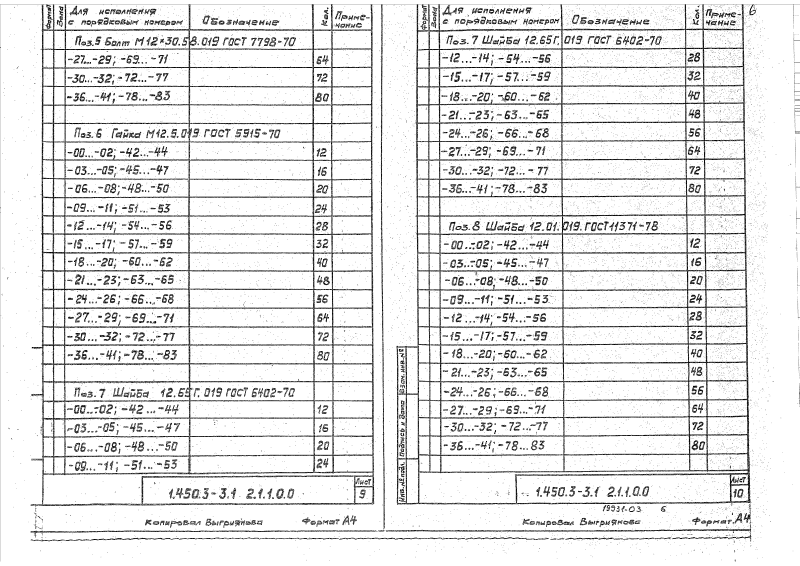 Формат
Зона
Для исполнения с порядковым номером
Обозначение
Кол.
Приме-чание
Поз.5 Болт М12×30.58.019 ГОСТ 7798-70
-27...-29; -69...-71 64
-30...-32; -72...-77 72
-36...-41; -78...-83 80
Поз.6 Гайка М12.5.019 ГОСТ 5915-70
-00...-02; -42...-44 12
-03...-05; -45...-47 16
-06...-08; -48...-50 20
-09...-11; -51...-53 24
-12...-14; -54...-56 28
-15...-17; -57...-59 32
-18...-20; -60...-62 40
-21...-23; -63...-65 48
-24...-26; -66...-68 56
-27...-29; -69...-71 64
-30...-32; -72...-77 72
-36...-41; -78...-83 80
Поз.7 Шайба 12.65Г.019 ГОСТ 6402-70
-00...-02; -42...-44 12
-03...-05; -45...-47 16
-06...-08; -48...-50 20
-09...-11; -51...-53 24
1.450.3-3.1 2.1.1.0.0
Лист
9
Копировал Выгриянова Формат А4
6
Формат
Зона
Для исполнения с порядковым номером
Обозначение
Кол.
Приме-чание
Поз.7 Шайба 12.65Г.019 ГОСТ 6402-70
-12...-14; -54...-56 28
-15...-17; -57...-59 32
-18...-20; -60...-62 40
-21...-23; -63...-65 48
-24...-26; -66...-68 56
-27...-29; -69...-71 64
-30...-32; -72...-77 72
-36...-41; -78...-83 80
Поз.8 Шайба 12.01.019.ГОСТ11371-78
-00...-02; -42...-44 12
-03...-05; -45...-47 16
-06...-08; -48...-50 20
-09...-11; -51...-53 24
-12...-14; -54...-56 28
-15...-17; -57...-59 32
-18...-20; -60...-62 40
-21...-23; -63...-65 48
-24...-26; -66...-68 56
-27...-29; -69...-71 64
-30...-32; -72...-77 72
-36...-41; -78...83 80
Взам. инв. №
Подпись и дата
Инв. № подл.
1.450.3-3.1 2.1.1.0.0
Лист
10
19931-03 6
Копировал Выгриянова Формат А4